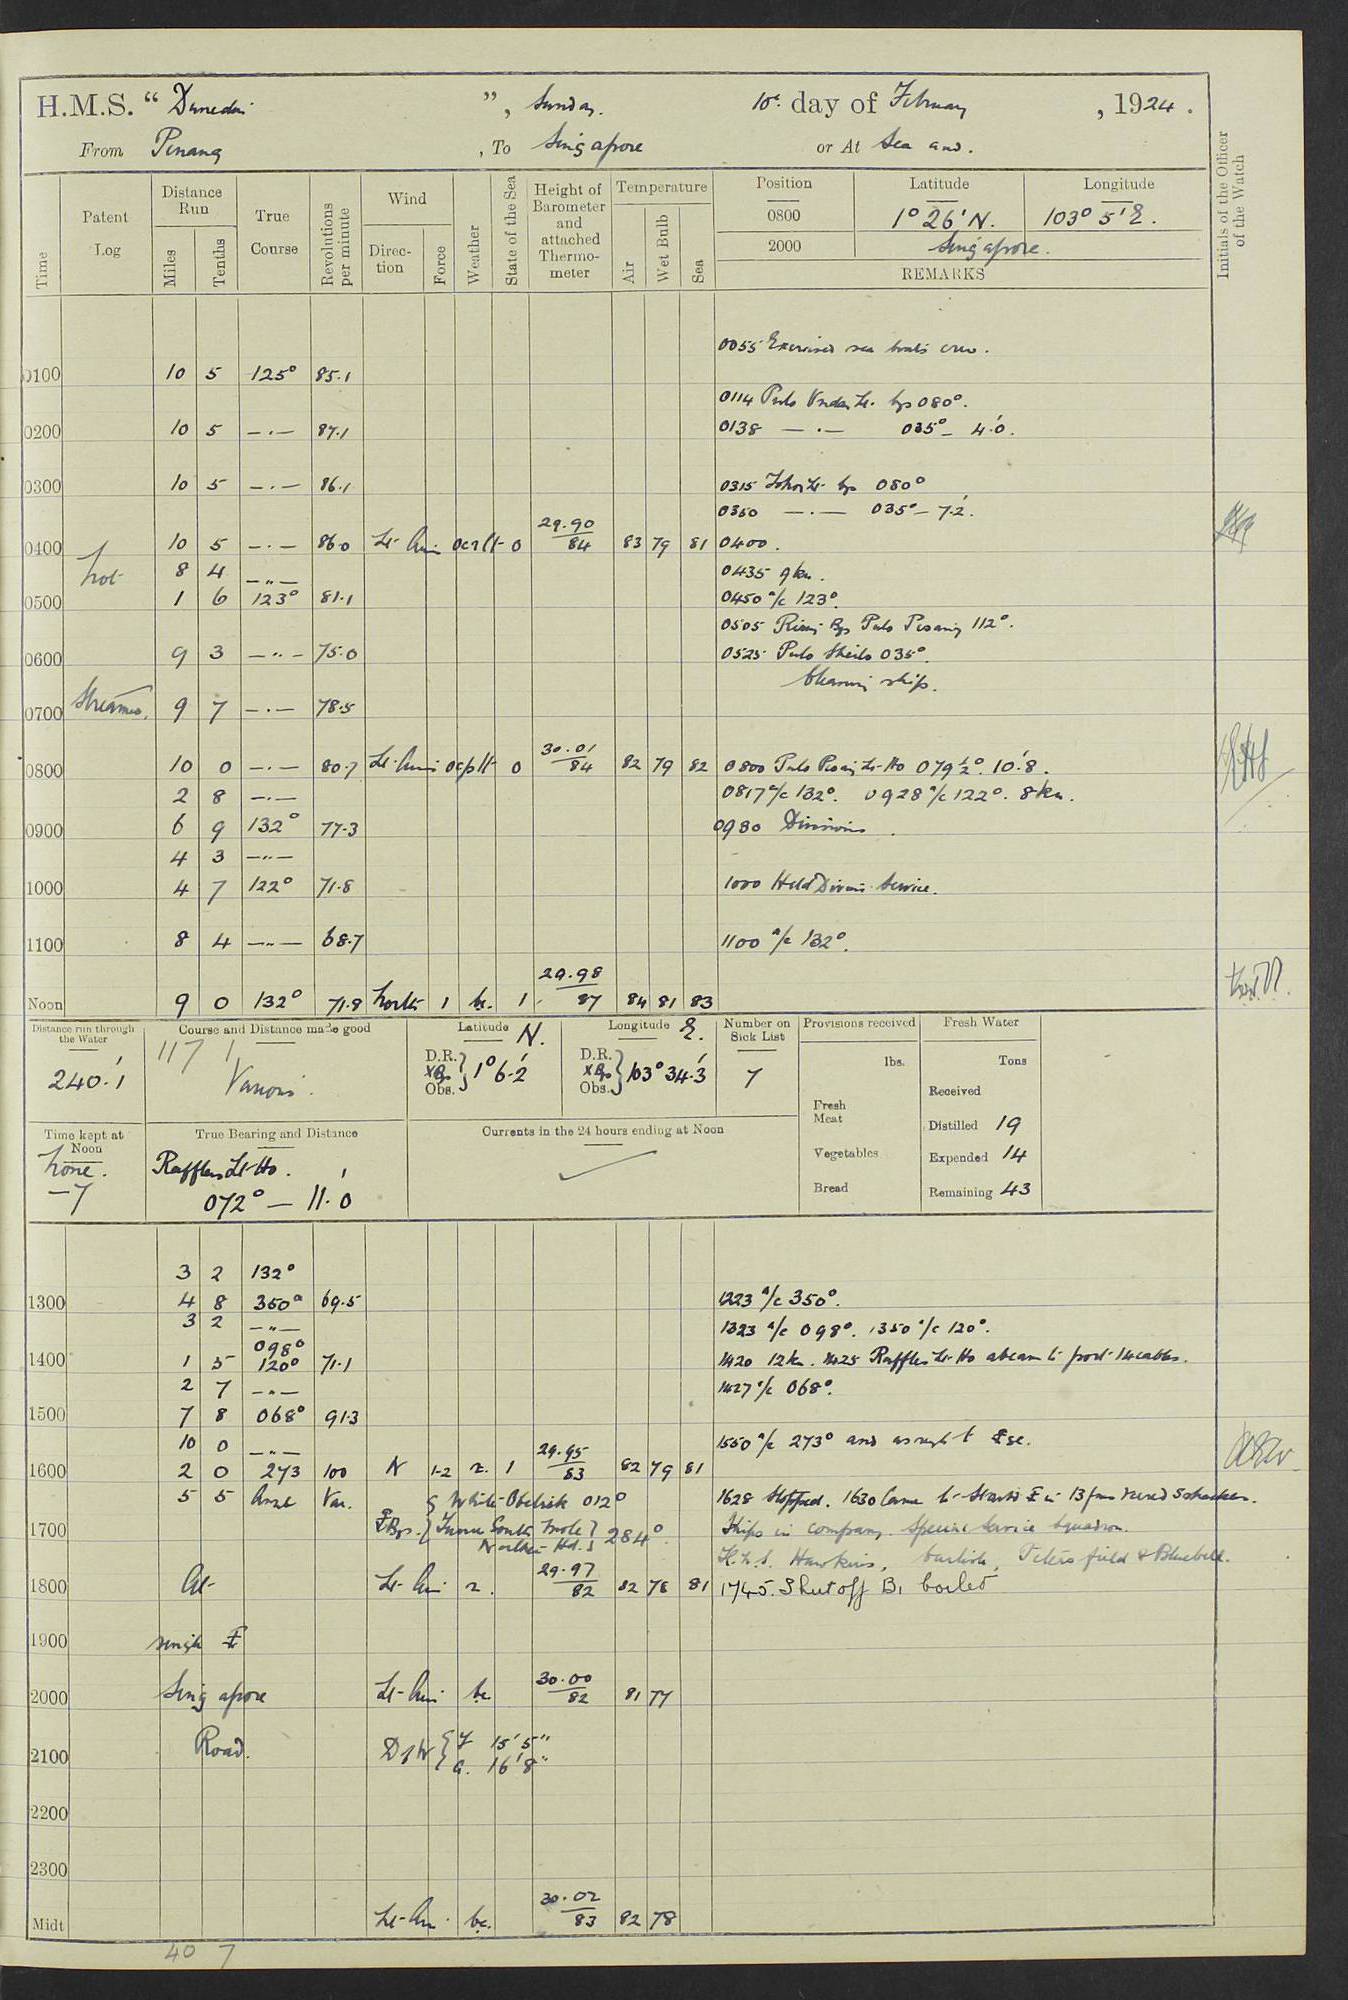 H.M.S. "Dunedin", Sunday. 10th day of February, 1924.
From Penang, To Singapore or At Sea and.
Time
Patent Log
Distance Run
Miles
Tenths
True Course
Revolutions per minute
Wind
Direction
Force
Weather
State of the Sea
Height of Barometer and attached Thermometer
Temperature
Air
Wet Bulb
Sea
Position
Latitude
Longitude
0800 1° 26' N. 103° 5' E.
2000 Singapore.
REMARKS
Initials of the Officer of the Watch
0055 Exercised sea boats crew.
0100 10 5 125° 85.1
0114 Pulo Undan Lt. bgs 080°.
0200 10 5 —.— 87.1 0138 —.— 035° — 4.'0.
0300 10 5 —.— 86.1 0315 Lt. bgs 080°
0350 —.— 035° — 7.'2.
0400 10 5 —.— 86.0 Lt. Airs 0 29.90/84 83 79 81 0400.
Not 8 4 —"— 0435 9 kn.
0500 1 6 123° 81.1 0450 a/c 123°.
0505 Bgs Pulo Pisang 112°.
0600 9 3 —"— 75.0 0525 Pulo 035°.
Cleaning ship.
0700 Streamed. 9 7 —.— 78.5
0800 10 0 —.— 80.7 Lt. Airs 0 30.01/84 82 79 82 0800 Pulo Pisang Lt-Ho 079½°. 10.'8.
2 8 —.— 0817 a/c 132°. 0928 a/c 122°. 8 kn.
0900 6 9 132° 77.3 0930 Divisions.
4 3 —"—
1000 4 7 122° 71.8 1000 Held Divine Service.
1100 8 4 —"— 68.7 1100 a/c 132°.
Noon 9 0 132° 71.9 North 1 bc. 1 29.98/87 84 81 83
Distance run through the Water
240.'1
Course and Distance made good
117
Various.
Latitude N.
D.R. X Bgs Obs. } 1° 6.'2
Longitude E.
D.R. X Bgs Obs. } 103° 34.'3
Number on Sick List
7
Provisions received
lbs.
Fresh Meat
Vegetables
Bread
Fresh Water
Tons
Received
Distilled 19
Expended 14
Remaining 43
Time kept at Noon
Zone.
-7
True Bearing and Distance
Raffles Lt-Ho.
072° — 11.'0
Currents in the 24 hours ending at Noon
3 2 132°
1300 4 8 350° 69.5 1223 a/c 350°.
3 2 —"— 1323 a/c 098°. 1350 a/c 120°.
098°
1400 1 5 120° 71.1 1420 12 kn. 1425 Raffles Lt-Ho abeam to port 14 cables.
2 7 —"— 1427 a/c 068°.
1500 7 8 068° 91.3
10 0 —"— 1550 a/c 273° and as req'd to
1600 2 0 273 100 N 1-2 r. 1 29.95/83 82 79 81
5 5 Var. { White Obelisk 012° 1628 Stopped. 1630 Came to Starbd in 13 fms veered 5 shackles.
1700 Bgs. { Inner South Mole } 284°. Ships in company. Special Service Squadron.
Northern Hd. } H.M.S. Hawkins, Carlisle, Petersfield & Bluebell.
1800 At Lt. Airs r. 29.97/82 82 78 81 1745. Shut off B1 boiler
1900 single
2000 Singapore Lt-Airs bc. 30.00/82 81 77
2100 Road. D of W { F 15' 5"
A. 16' 8"
2200
2300
Midt Lt-Airs. bc. 30.02/83 82 78
40 7